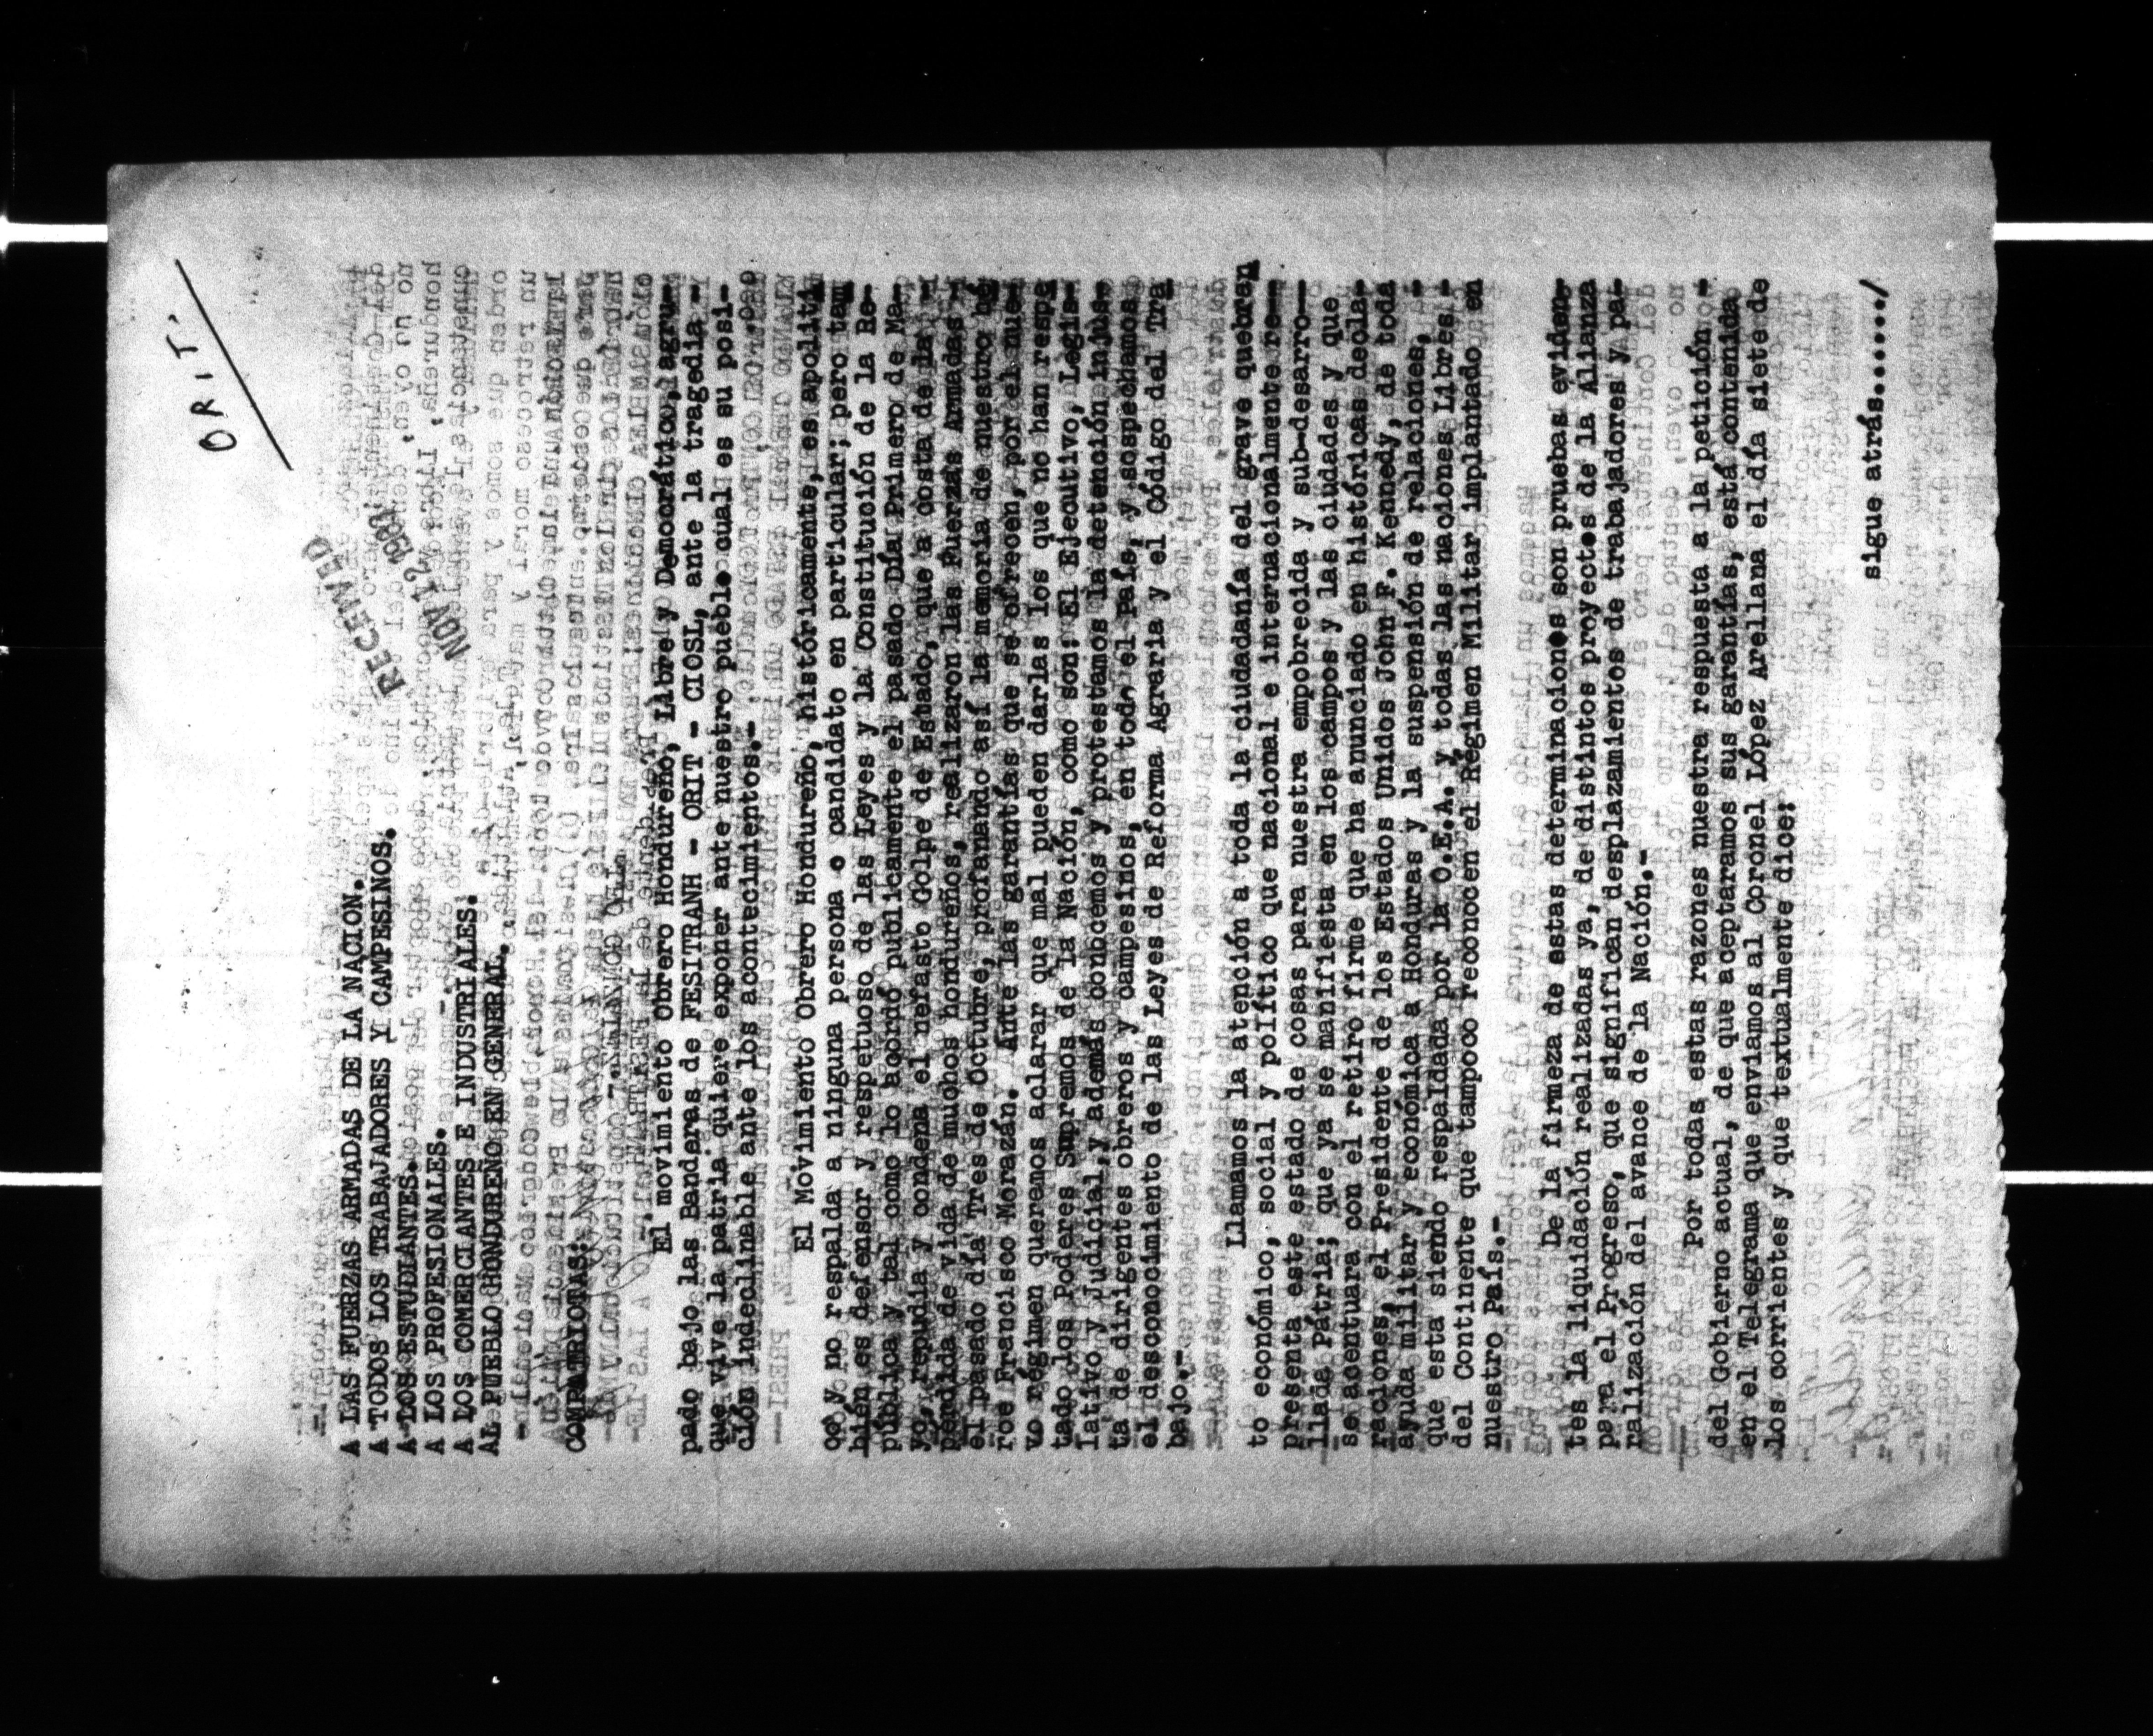 ORIT.
RECEIVED
NOV 12 1963
A LAS FUERZAS ARMADAS DE LA NACION.
A TODOS LOS TRABAJADORES Y CAMPESINOS.
A LOS ESTUDIANTES.
A LOS PROFESIONALES.
A LOS COMERCIANTES E INDUSTRIALES.
AL PUEBLO HONDUREÑO EN GENERAL.
COMPATRIOTAS:
El movimiento Obrero Hondureño, Libre y Democrático, agru-
pado bajo las Banderas de FESITRANH - ORIT - CIOSL, ante la tragedia -
que vive la patria quiere exponer ante nuestro pueblo cual es su posi-
ción indeclinable ante los acontecimientos.-
El Movimiento Obrero Hondureño, históricamente, es apolíti
co y no respalda a ninguna persona o candidato en particular; pero tam
bién es defensor y respetuoso de las Leyes y la Constitución de la Re-
pública y tal como lo acordó publicamente el pasado Día Primero de Ma-
yo, repudia y condena el nefasto Golpe de Estado, que a costa de la -
perdida de vida de muchos hondureños, realizaron las Fuerzas Armadas -
el pasado día Tres de Octubre, profanando así la memoria de nuestro hé
roe Francisco Morazán. Ante las garantías que se ofrecen, por el nue-
vo régimen queremos aclarar que mal pueden darlas los que no han respe
tado los Poderes Supremos de la Nación, como son: El Ejecutivo, Legis-
lativo y Judicial, y además conocemos y protestamos la detención injus-
ta de dirigentes obreros y campesinos, en todo el País, y sospechamos
el desconocimiento de las Leyes de Reforma Agraria y el Código del Tra
bajo.-
Llamamos la atención a toda la ciudadanía del grave quebran
to económico, social y político que nacional e internacionalmente re--
presenta este estado de cosas para nuestra empobrecida y sub-desarro--
llada Pátria; que ya se manifiesta en los campos y las ciudades y que
se acentuara con el retiro firme que ha anunciado en históricas decla-
raciones, el Presidente de los Estados Unidos John F. Kennedy, de toda
ayuda militar y económica a Honduras y la suspensión de relaciones, -
que esta siendo respaldada por la O.E.A. y todas las naciones Libres.-
del Continente que tampoco reconocen el Régimen Militar implantado en
nuestro País.-
De la firmeza de estas determinaciones son pruebas eviden-
tes la liquidación realizadas ya, de distintos proyectos de la Alianza
para el Progreso, que significan desplazamientos de trabajadores y pa-
ralización del avance de la Nación.-
Por todas estas razones nuestra respuesta a la petición -
del Gobierno actual, de que aceptaramos sus garantías, está contenida
en el Telegrama que enviamos al Coronel López Arellana el día siete de
los corrientes y que textualmente dice:
sigue atrás....../